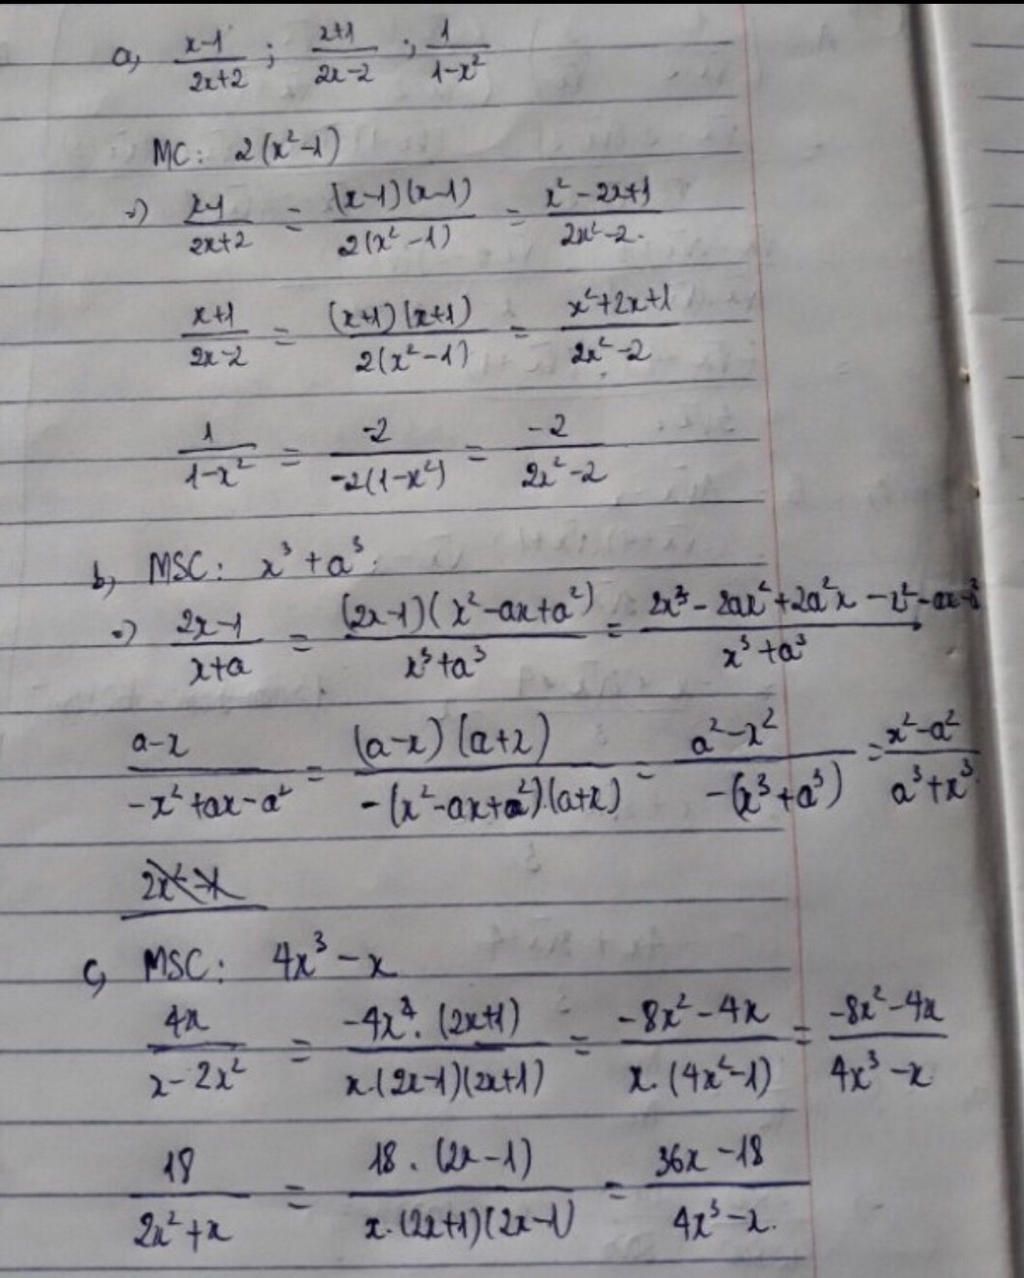 a, x-1/2x+2 ; x+1/2x-2 ; 1/1-x²
MC: 2(x²-1)
=) x-1/2x+2 = (x-1)(x-1)/2(x²-1) = x²-2x+1/2x²-2.
x+1/2x-2 = (x+1)(x+1)/2(x²-1) = x²+2x+1/2x²-2
1/1-x² = -2/-2(1-x²) = -2/2x²-2
b, MSC: x³+a³.
=) 2x-1/x+a = (2x-1)(x²-ax+a²)/x³+a³ = 2x³-2ax²+2a²x-x²-ax-a²/x³+a³
a-x/-x²+ax-a² = (a-x)(a+x)/-(x²-ax+a²).(a+x) = a²-x²/-(x³+a³) = x²-a²/a³+x³.
c, MSC: 4x³-x
4x/x-2x² = -4x².(2x+1)/x.(2x-1)(2x+1) = -8x²-4x/x.(4x²-1) = -8x²-4x/4x³-x
18/2x²+x = 18.(2x-1)/x.(2x+1)(2x-1) = 36x-18/4x³-x.